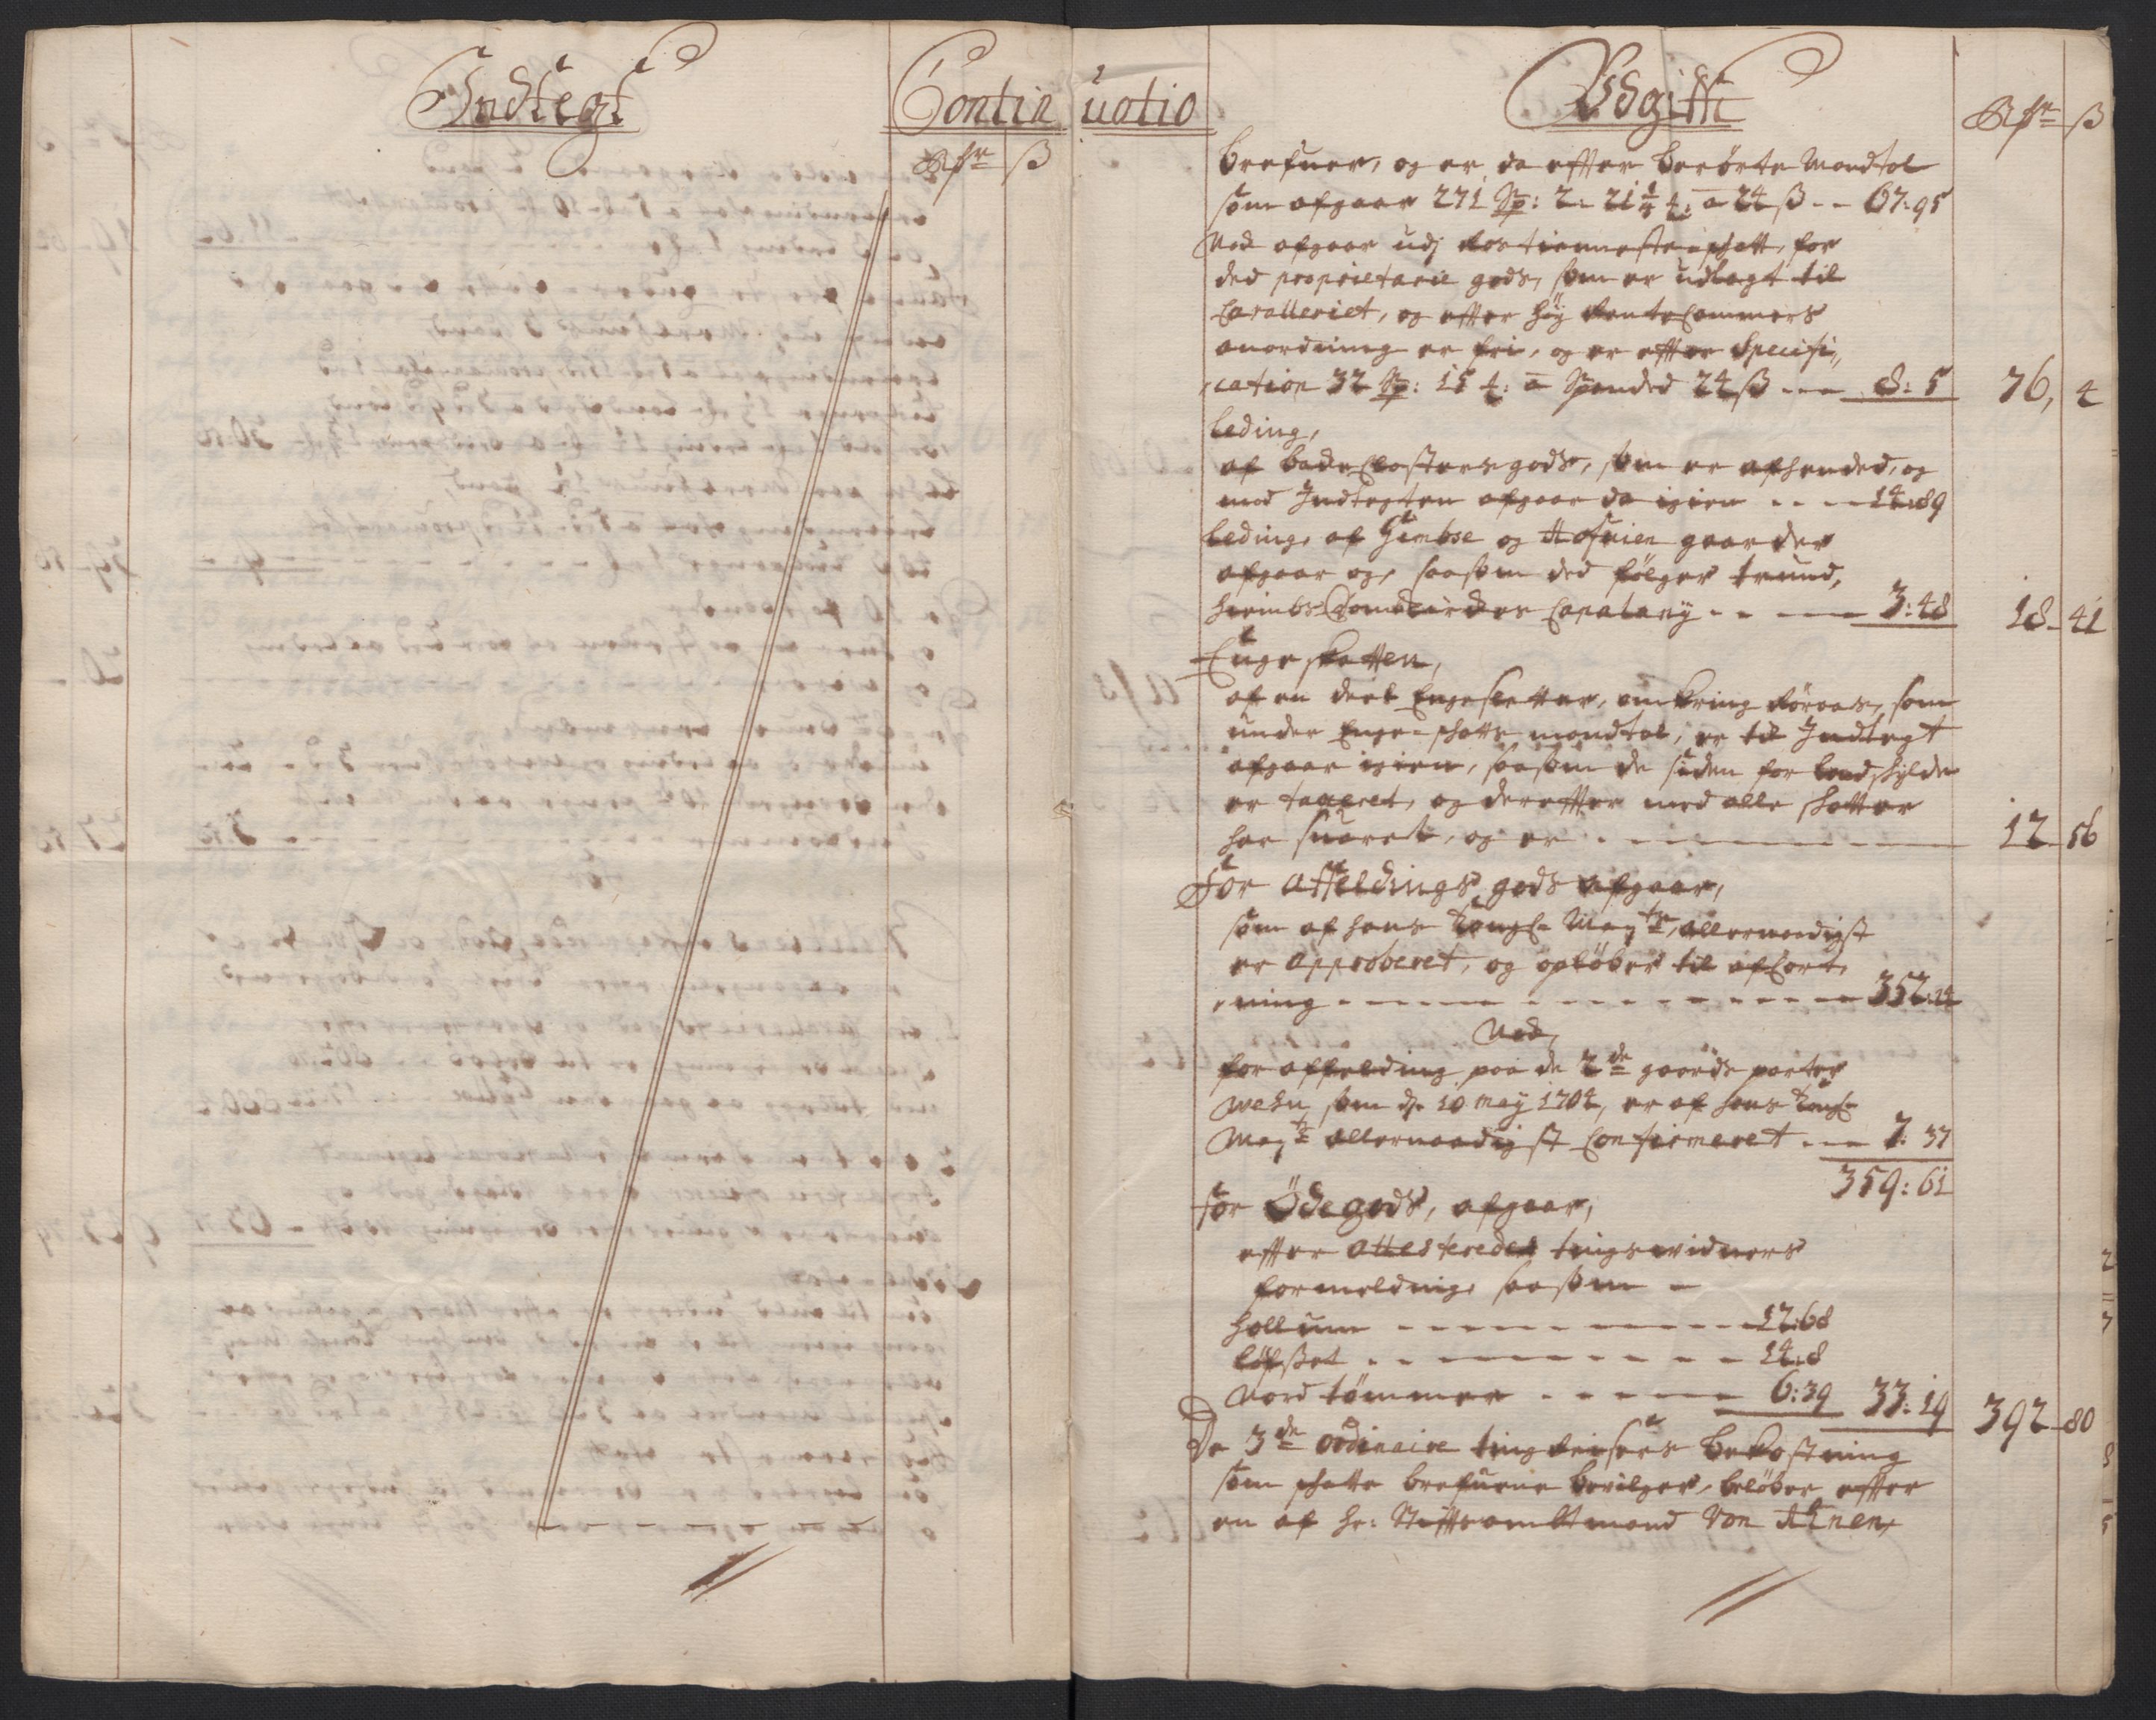 Indtegt
Continuatio
Rdr ß
Udgifft
Rdr ß
brefuer, og er da effter berörte Mandtal
som afgaar 271 Sp: 2: 21¼ à 24 ß -- 67:95
Ned afgaar udj Rostienneste schatt, for
ded proprietarie gods, som er udlagt til
Cavalleriet, og effter höy RenteCammers
anordning er fri, og er effter Specifi,,
cation 32 Sp: 15 à Spanded 24 ß --- 8: 5 76, 4
Leding,
af Bache Closters gods, som er afhended, og
mod Indtegten afgaar da igien ---- 14:89
Leding, af Gimbse og gaarder
afgaar og, saasom ded fölger trund,
hiembs Domkirckes --- 3:48 18- 41
Enge skatten,
af en deel Engesletter, omkring Röraas, som
under Enge-schatts mandtal, er til Indtegt
afgaar igien, saasom de siden for landschylde
er taxeret, og dereffter med alle schatter
har suaret, og er - - - - - 12 56
For Affeldings gods afgaar,
som af hans Kongl: Maytt, allernaadigst
er Approberet, og opløber til afkort,
ning - - - - - 352:24
Ned,
for affelding paa de 2de gaards parter
Wehn, som d. 10 May 1704, er af hans Kongl
Maytt allernaadigst Confirmeret --- 7: 37
359: 61
For Öde gods, afgaar,
effter attesterede tingsvidners
formelding, saasom -
hollum - - - - - 12:68
löfset - - - - - 14:8
Nord tömmer - - - - 6:39 33:19 392 80
De 3de ordinaire ting Reisers bekostning
som schatte brefuene bevilger, belöber effter
en af hr: Stifftsambtmand Von Ahnen,